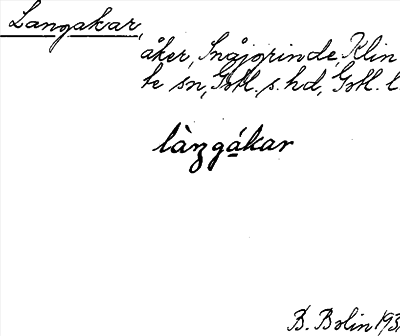 Langakar,
åker, Snåjgrinde, Klin
te sn, Gotl. s. hd, Gotl. l.
làŋgákar
B. Bolin 193